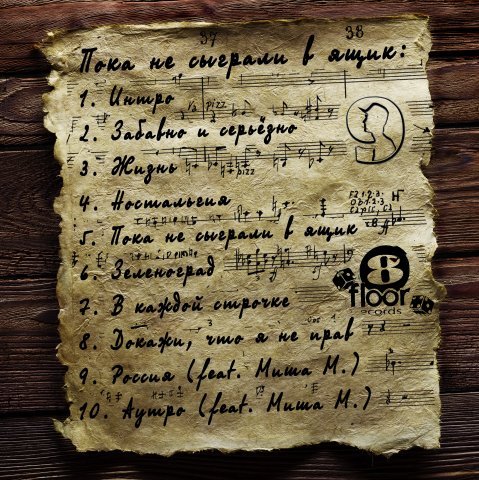 37 38
Пока не сыграли в ящик:
1. Интро
pizz
2. Забавно и серьёзно
3. Жизнь
pizz
4. Ностальгия
5. Пока не сыграли в ящик
6. Зеленоград
8
floor
ecords
7. В каждой строчке
8. Докажи, что я не прав
9. Россия (feat. Миша М.)
10. Аутро (feat. Миша М.)